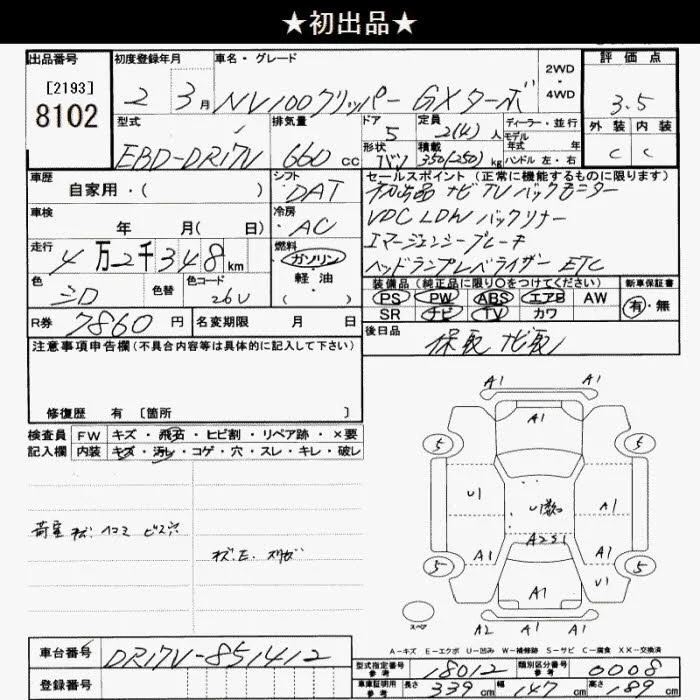 ★初出品★
出品番号 初度登録年月 車名・グレード 2WD・4WD 評価点
[2193]
8102
2 3月 NV100クリッパー GXターボ 3.5
型式 排気量 ドア 定員 ディーラー・並行 外装 内装
EBD-DR17V 660cc 5 2(4)人 モデル年式 年式 C C
形状 バン 積載 350(250)kg ハンドル 左・右
車歴 自家用・( ) シフト DAT
セールスポイント (正常に機能するものに限ります)
初出品 ナビ TV バックモニター
車検 年 月( 日) 冷房 AC
VDC LDW バックソナー
エマージェンシーブレーキ
走行 4万2千348km 燃料 ガソリン・軽油・( )
ヘッドランプレベライザー ETC
色 シロ 色替 色コード 26U
装備品 (純正品に限り○をつけてください) 新車保証書
PS PW ABS エアB AW 有・無
SR ナビ TV カワ
R券 7860円 名変期限 月 日
後日品 保取 ナビ取
注意事項申告欄 (不具合内容等は具体的に記入して下さい)
修復歴 有 [箇所 ]
検査員記入欄 FW キズ・飛石・ヒビ割・リペア跡・×要
内装 キズ・汚れ・コゲ・穴・スレ・キレ・破レ
荷室 キズ ヘコミ ビス穴
キズ、E、スリキズ
A1 A1
A1
5 5
U1 U数 A1
A2S1
A1 A1
5 5
U1
A1
スペア
A2 A1 A1
A−キズ E−エクボ U−凹み W−補修跡 S−サビ C−腐食 XX−交換済
車台番号 DR17V-851412
登録番号
型式指定番号 参考 18012 類別区分番号 参考 0008
車庫証明用 参考 長さ 339cm 幅 147cm 高さ 189cm